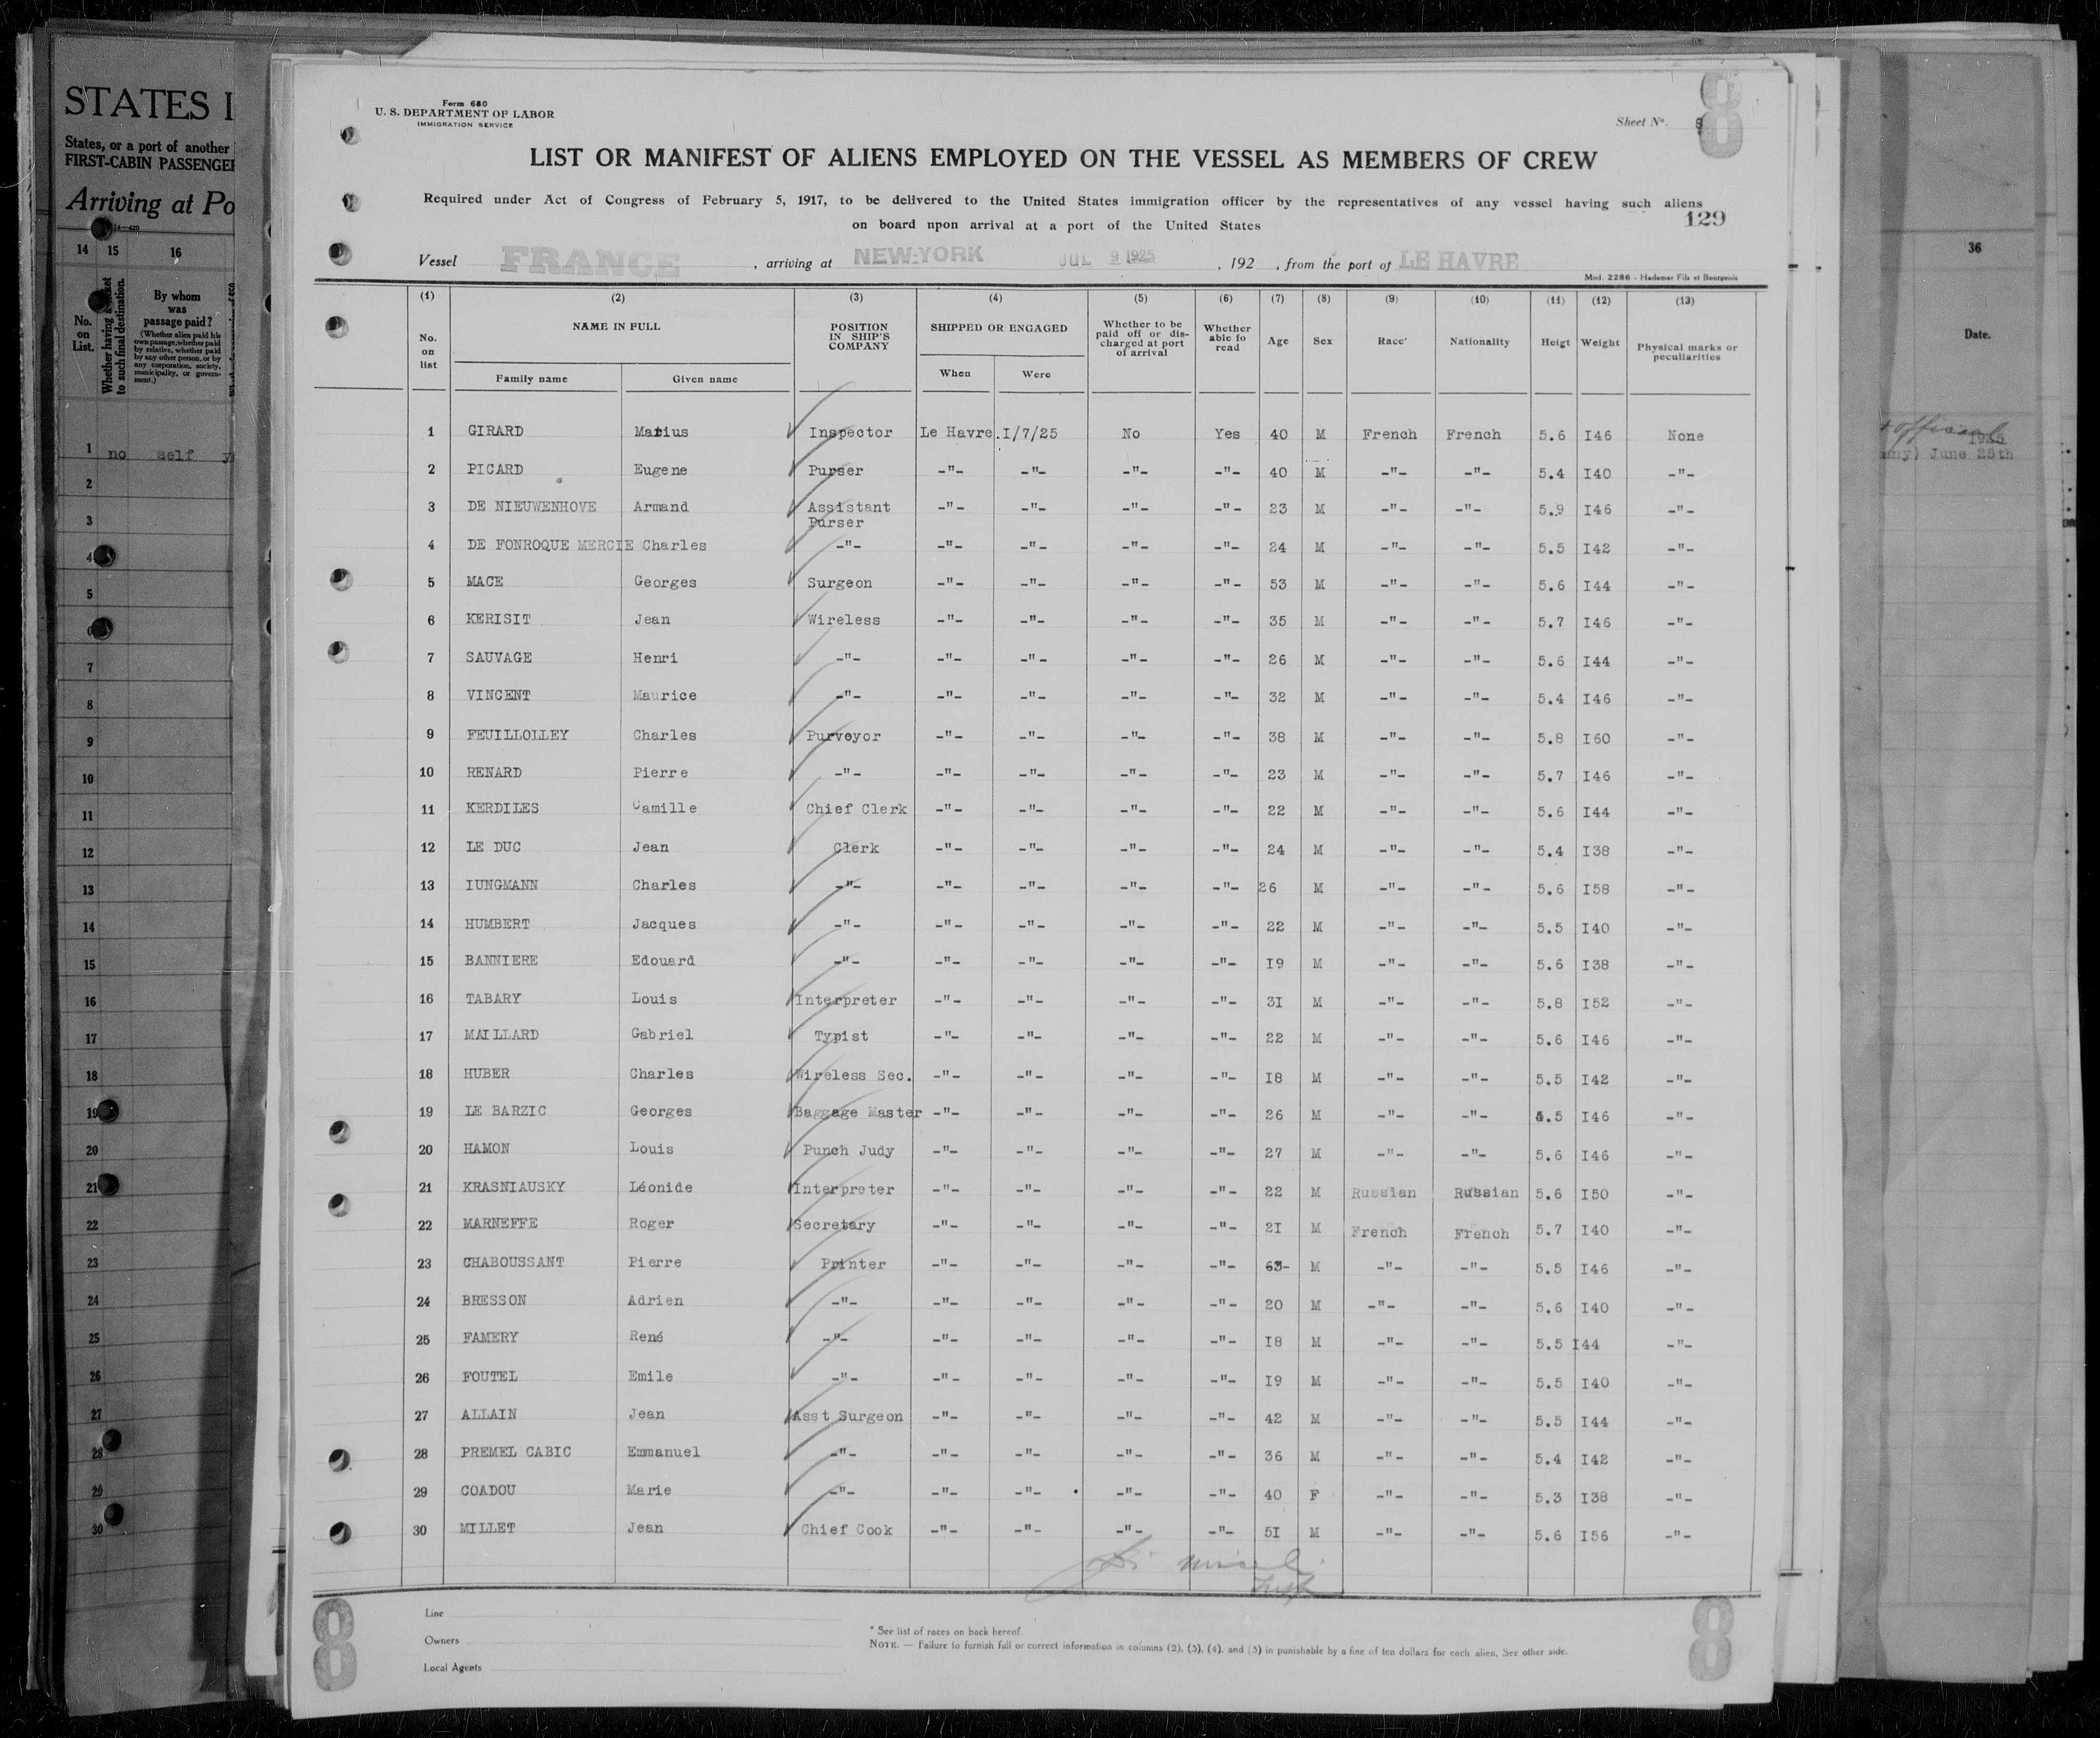 STATES I
States, or a port of another
FIRST-CABIN PASSENGER
Arriving at Po
14 15 16
No. on List.
Whether having a ticket to such final destination.
By whom was passage paid?
(Whether alien paid his own passage, whether paid by relative, whether paid by any other person, or by any corporation, society, municipality, or government.)
1 no self y
2
3
4
5
6
7
8
9
10
11
12
13
14
15
16
17
18
19
20
21
22
23
24
25
26
27
28
29
30
Form 680
U. S. DEPARTMENT OF LABOR
IMMIGRATION SERVICE
Sheet No. 8
8
LIST OR MANIFEST OF ALIENS EMPLOYED ON THE VESSEL AS MEMBERS OF CREW
Required under Act of Congress of February 5, 1917, to be delivered to the United States immigration officer by the representatives of any vessel having such aliens
on board npon arrival at a port of the United States
129
Vessel FRANCE, arriving at NEW-YORK JUL 9 1925, 192 , from the port of LE HAVRE
Mod. 2286 - Hadamar Fils et Bourgeois
(1) (2) (3) (4) (5) (6) (7) (8) (9) (10) (11) (12) (13)
No. on list
NAME IN FULL
Family name Given name
POSITION IN SHIP'S COMPANY
SHIPPED OR ENGAGED
When Were
Whether to be paid off or discharged at port of arrival
Whether able to read
Age Sex Race* Nationality Heigt Weight
Physical marks or peculiarities
1 GIRARD Marius Inspector Le Havre.I/7/25 No Yes 40 M French French 5.6 I46 None
2 PICARD Eugene Purser -"- -"- -"- -"- 40 M -"- -"- 5.4 I40 -"-
3 DE NIEUWENHOVE Armand Assistant Purser -"- -"- -"- -"- 23 M -"- -"- 5.9 I46 -"-
4 DE FONROQUE MERCIE Charles -"- -"- -"- -"- -"- 24 M -"- -"- 5.5 I42 -"-
5 MACE Georges Surgeon -"- -"- -"- -"- 53 M -"- -"- 5.6 I44 -"-
6 KERISIT Jean Wireless -"- -"- -"- -"- 35 M -"- -"- 5.7 I46 -"-
7 SAUVAGE Henri -"- -"- -"- -"- -"- 26 M -"- -"- 5.6 I44 -"-
8 VINCENT Maurice -"- -"- -"- -"- -"- 32 M -"- -"- 5.4 I46 -"-
9 FEUILLOLLEY Charles Purveyor -"- -"- -"- -"- 38 M -"- -"- 5.8 I60 -"-
10 RENARD Pierre -"- -"- -"- -"- -"- 23 M -"- -"- 5.7 I46 -"-
11 KERDILES Camille Chief Clerk -"- -"- -"- -"- 22 M -"- -"- 5.6 I44 -"-
12 LE DUC Jean Clerk -"- -"- -"- -"- 24 M -"- -"- 5.4 I38 -"-
13 IUNGMANN Charles -"- -"- -"- -"- -"- 26 M -"- -"- 5.6 I58 -"-
14 HUMBERT Jacques -"- -"- -"- -"- -"- 22 M -"- -"- 5.5 I40 -"-
15 BANNIERE Edouard -"- -"- -"- -"- -"- I9 M -"- -"- 5.6 I38 -"-
16 TABARY Louis Interpreter -"- -"- -"- -"- 3I M -"- -"- 5.8 I52 -"-
17 MAILLARD Gabriel Typist -"- -"- -"- -"- 22 M -"- -"- 5.6 I46 -"-
18 HUBER Charles Wireless Sec. -"- -"- -"- -"- I8 M -"- -"- 5.5 I42 -"-
19 LE BARZIC Georges Baggage Master -"- -"- -"- -"- 26 M -"- -"- 5.5 I46 -"-
20 HAMON Louis Punch Judy -"- -"- -"- -"- 27 M -"- -"- 5.6 I46 -"-
21 KRASNIAUSKY Léonide Interpreter -"- -"- -"- -"- 22 M Russian Russian 5.6 I50 -"-
22 MARNEFFE Roger Secretary -"- -"- -"- -"- 2I M French French 5.7 I40 -"-
23 CHABOUSSANT Pierre Printer -"- -"- -"- -"- 63- M -"- -"- 5.5 I46 -"-
24 BRESSON Adrien -"- -"- -"- -"- -"- 20 M -"- -"- 5.6 I40 -"-
25 FAMERY René -"- -"- -"- -"- -"- I8 M -"- -"- 5.5 I44 -"-
26 FOUTEL Emile -"- -"- -"- -"- -"- I9 M -"- -"- 5.5 I40 -"-
27 ALLAIN Jean Asst Surgeon -"- -"- -"- -"- 42 M -"- -"- 5.5 I44 -"-
28 PREMEL CABIC Emmanuel -"- -"- -"- -"- -"- 36 M -"- -"- 5.4 I42 -"-
29 COADOU Marie -"- -"- -"- -"- -"- 40 F -"- -"- 5.3 I38 -"-
30 MILLET Jean Chief Cook -"- -"- -"- -"- 5I M -"- -"- 5.6 I56 -"-
Line
Owners
Local Agents
* See list of races on back hereof.
NOTE. — Failure to furnish full or correct information in columns (2), (3), (4), and (5) in punishable by a fine of ten dollars for each alien. See other side.
8
8
36
Date.
official 1925
any) June 25th